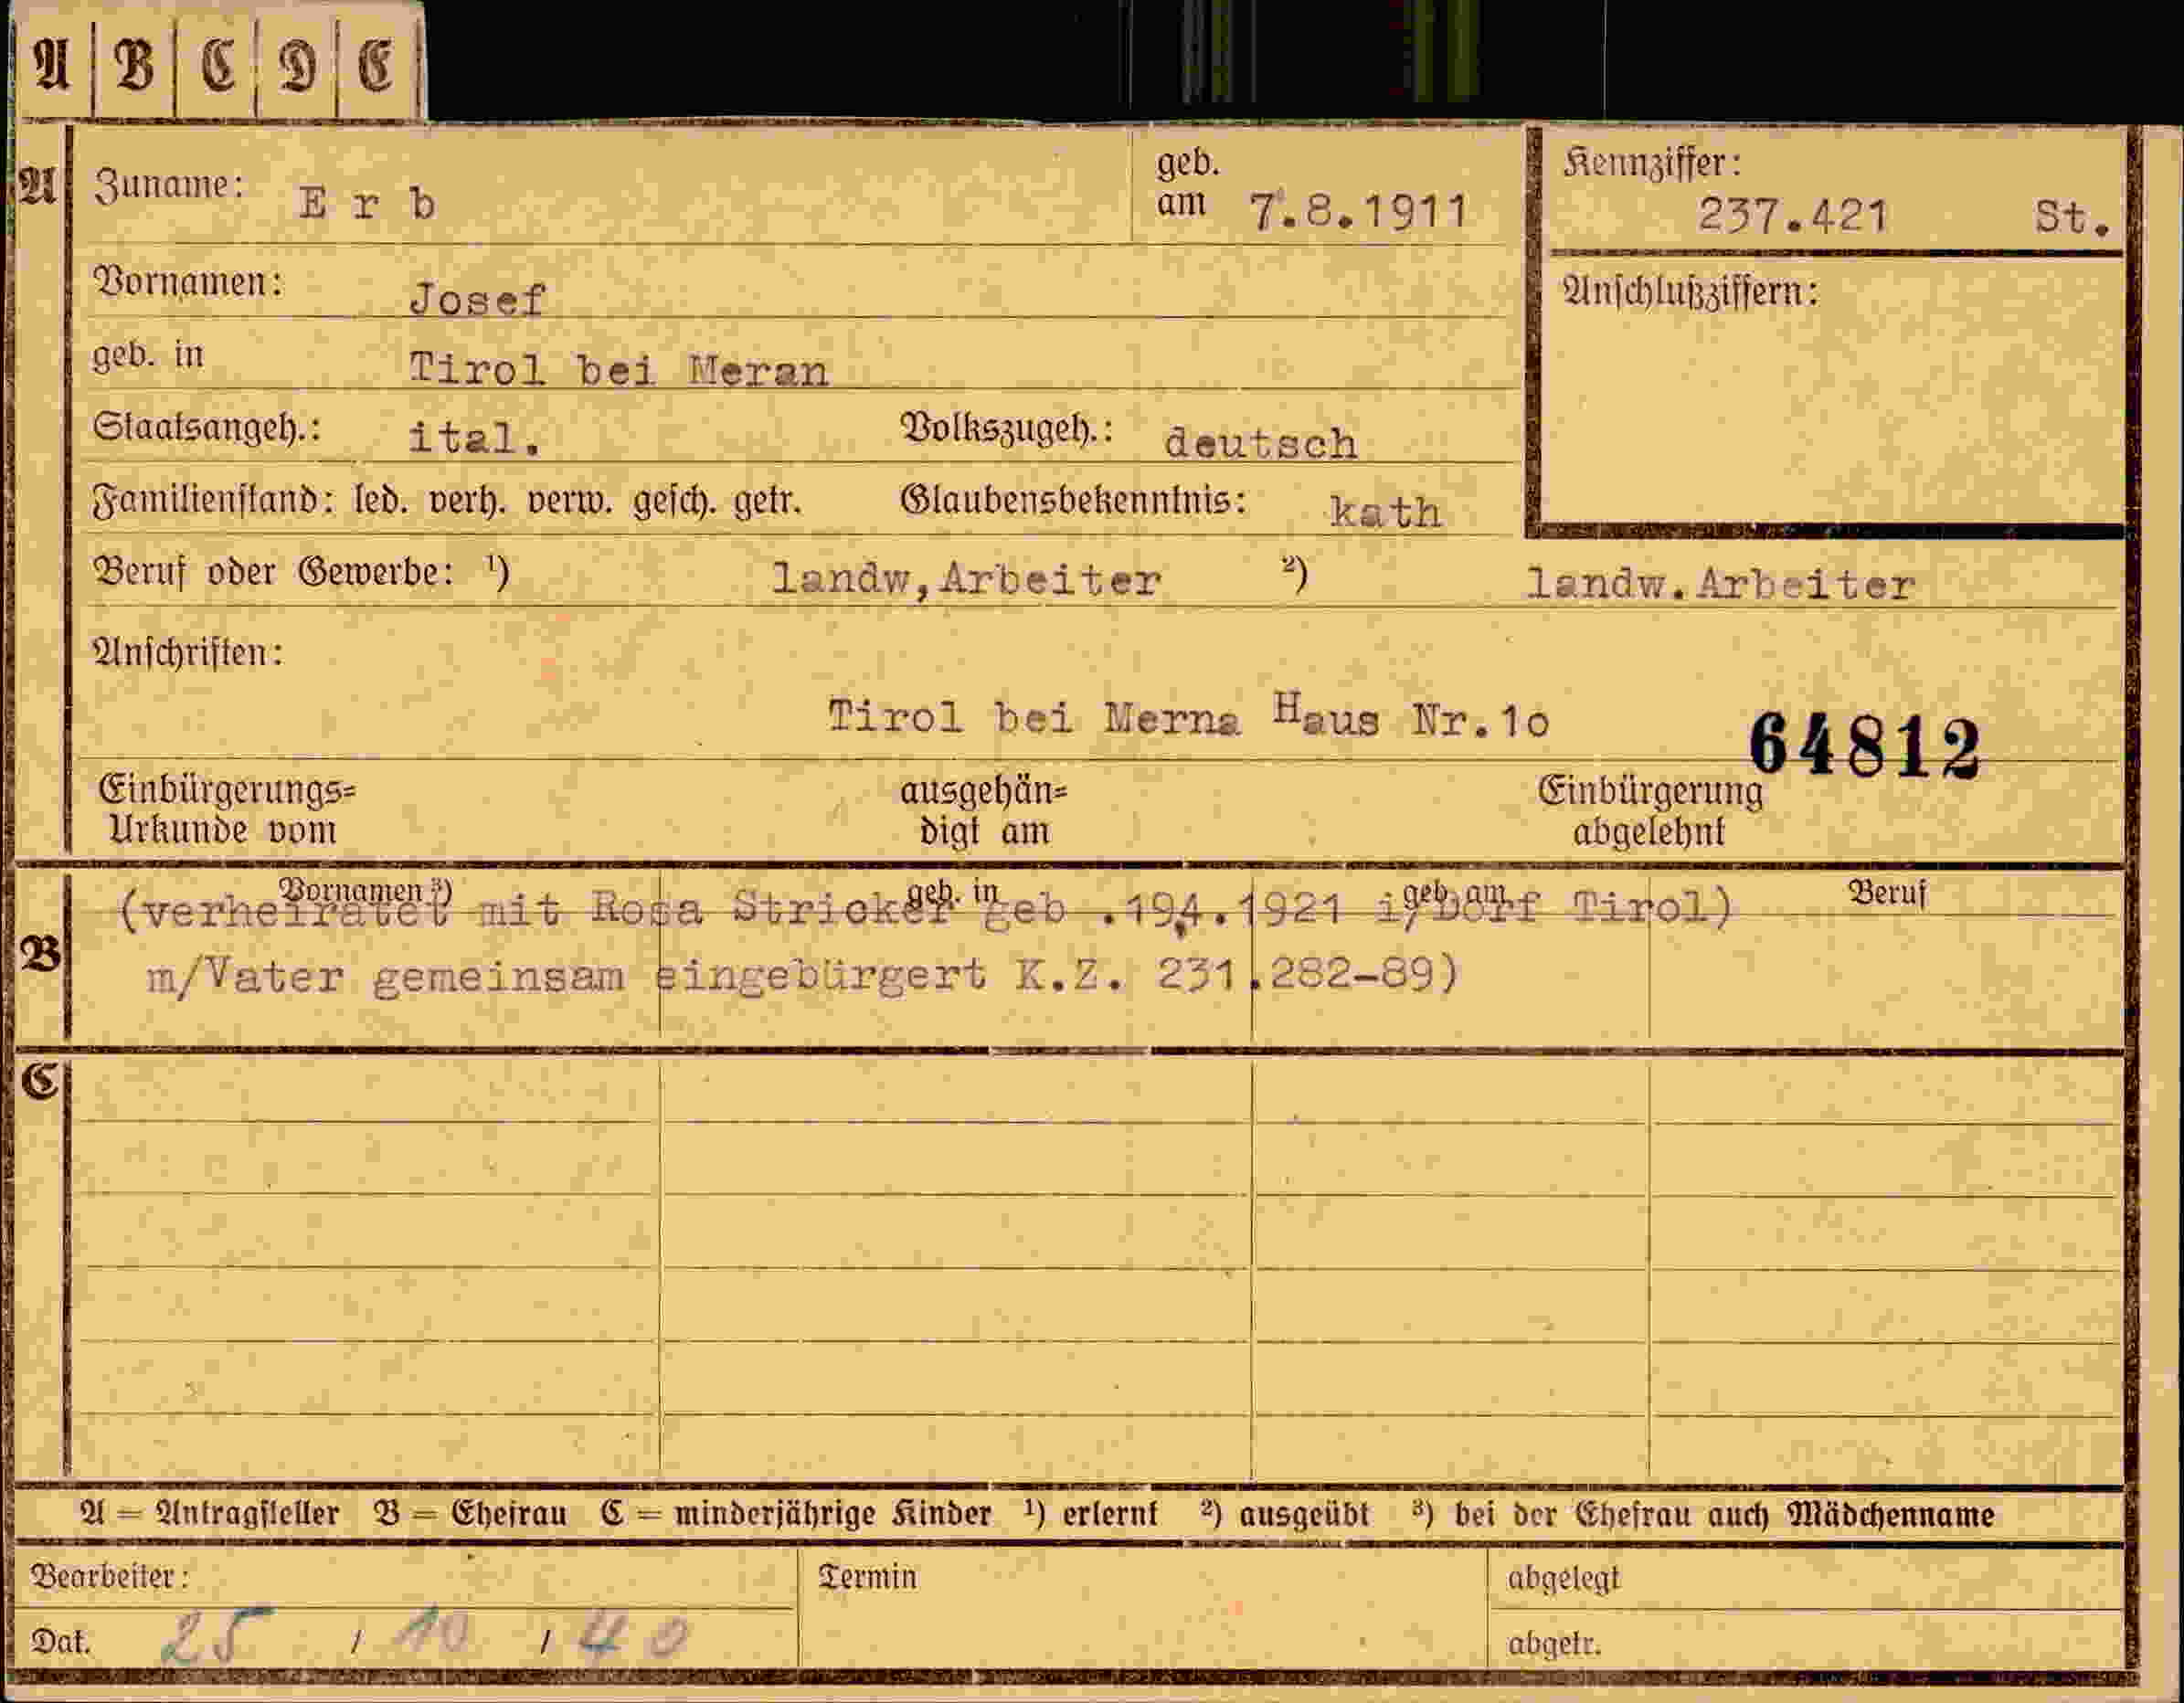 A B C D E
A Zuname: E r b geb. am 7.8.1911 Kennziffer: 237.421 St.
Vornamen: Josef Anschlußziffern:
geb. in Tirol bei Meran
Staatsangeh.: ital. Volkszugeh.: deutsch
Familienstand: led. verh. verw. gesch. getr. Glaubensbekenntnis: kath
Beruf oder Gewerbe: ¹) landw,Arbeiter ²) landw.Arbeiter
Anschriften:
Tirol bei Merna Haus Nr.1o 64812
Einbürgerungs= ausgehän= Einbürgerung
Urkunde vom digt am abgelehnt
Vornamen ³) geb. in geb. am Beruf
(verheiratet mit Rosa Stricker geb .19,4.1921 i, Dorf Tirol)
B m/Vater gemeinsam eingebürgert K.Z. 231.282-89)
C
A = Antragsteller B = Ehefrau C = minderjährige Kinder ¹) erlernt ²) ausgeübt ³) bei der Ehefrau auch Mädchenname
Bearbeiter: Termin abgelegt
Dat. 25 / 10 / 40 abgetr.